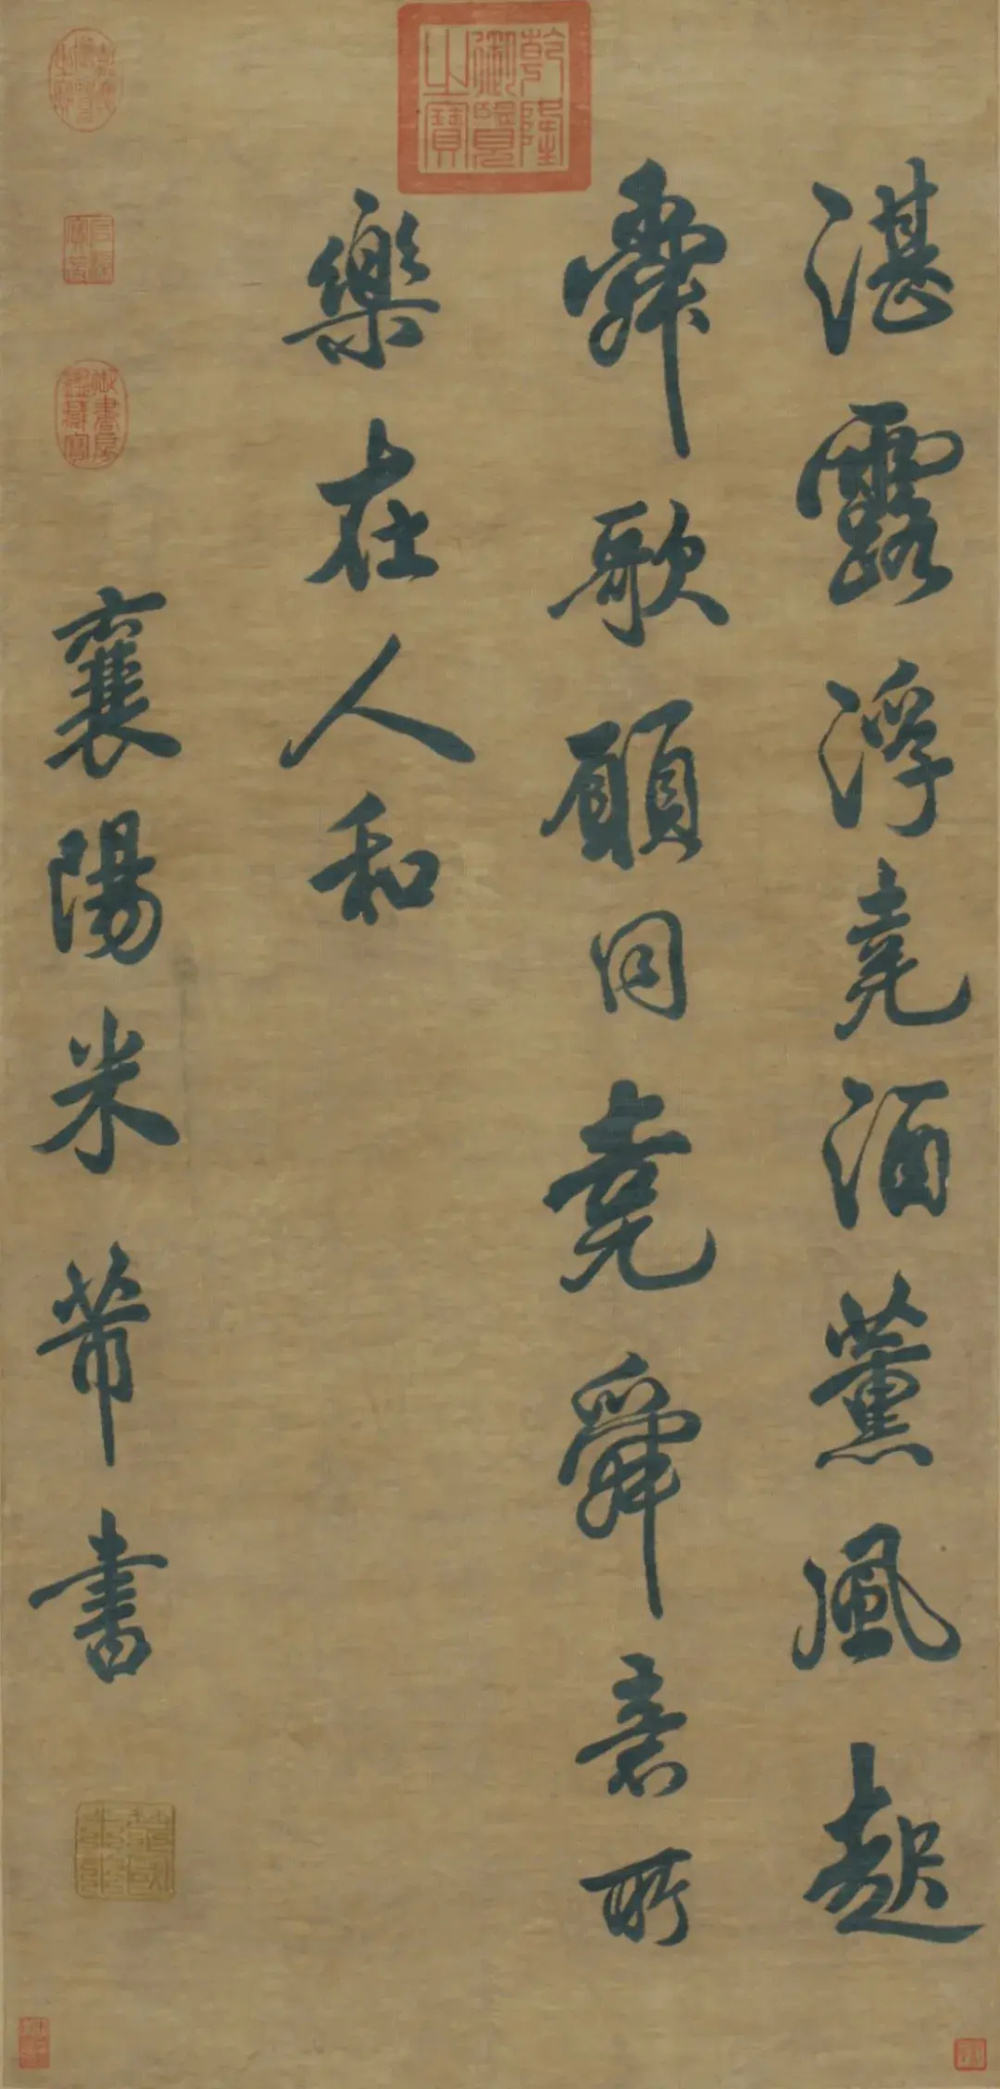 湛露浮堯酒薰風起
舜歌願同堯舜意所
樂在人和
襄陽米芾書
乾隆御覽之寶